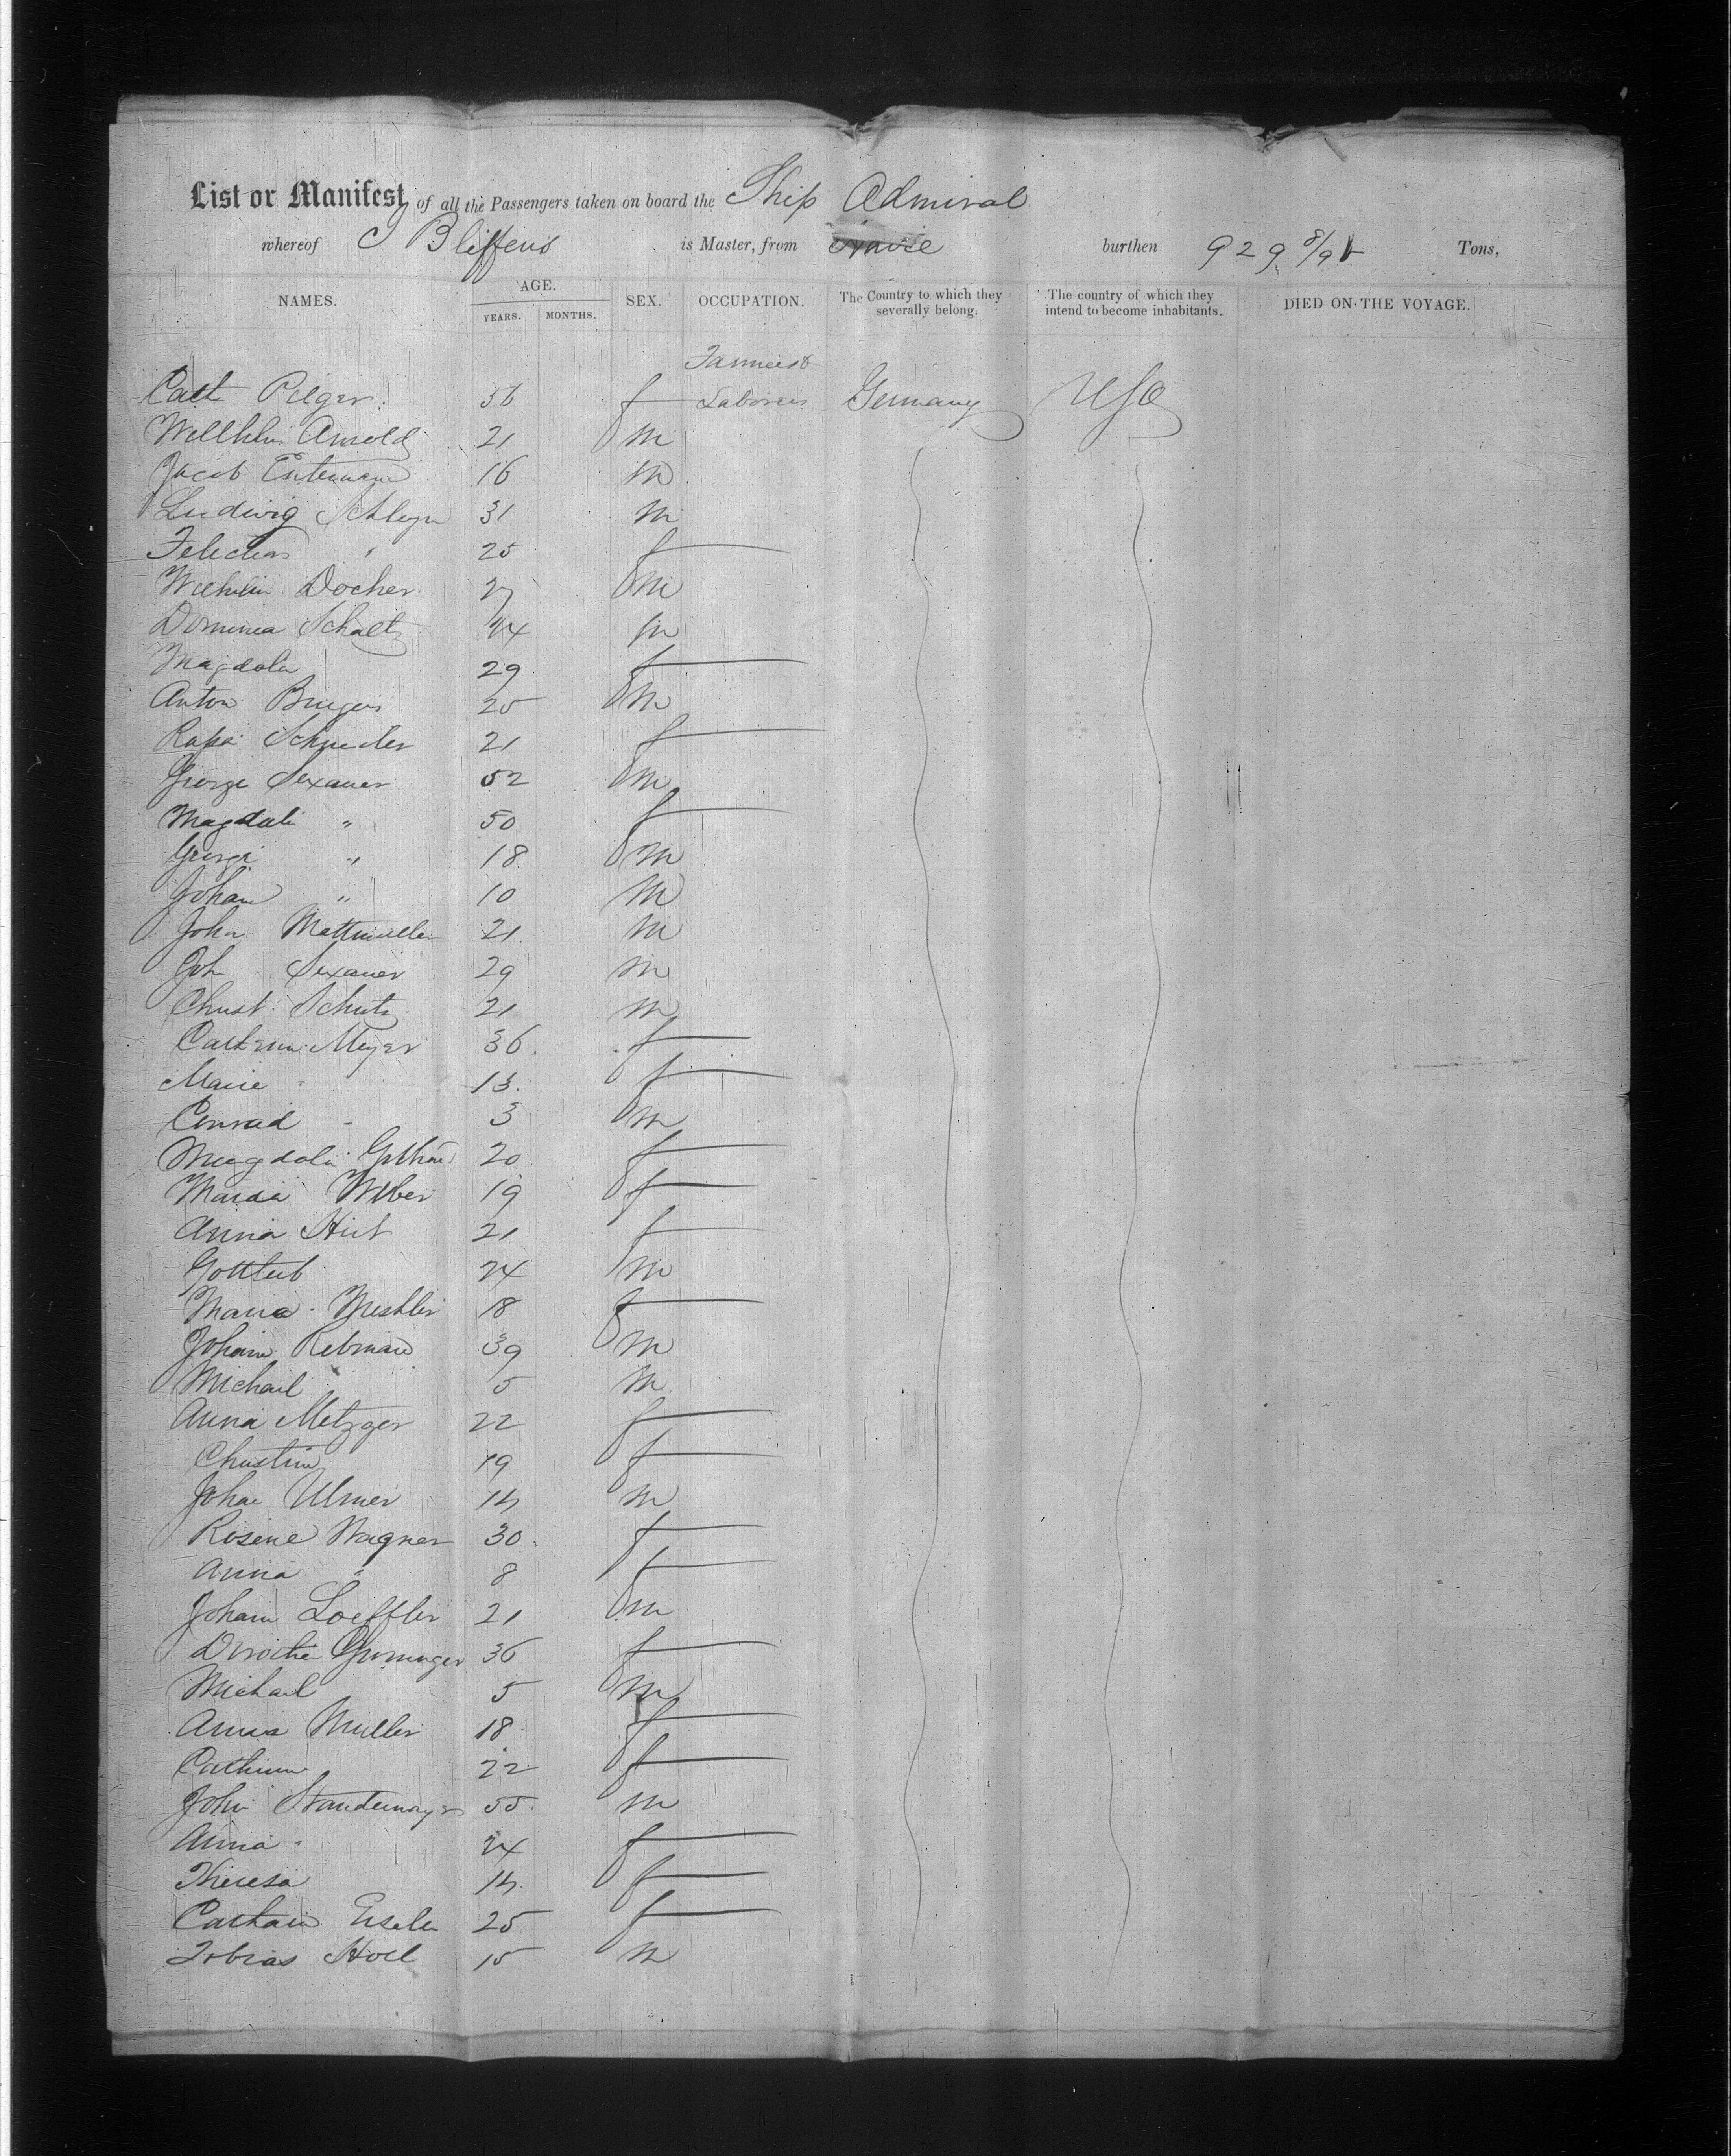 List or Manifest of all the Passengers taken on board the Ship Admiral
whereof J Bliffens is Master, from Havre burthen 929 8/95 Tons,
NAMES. AGE. YEARS. MONTHS. SEX. OCCUPATION. The Country to which they severally belong. The country of which they intend to become inhabitants. DIED ON THE VOYAGE.
Farmers &
Cath Pilger. 36 f Laborers Germany USA
Willhlm Arnold 21 m
Jacob Entemann 16 m
Ludwig 31 m
25 f
Wilhelm Docher 27 m
Schaltz 24 m
Magdala 29 f
Anton 25 m
Rosa Schneider 21 f
George Sexauer 52 m
Magdali " 50 f
George " 18 m
Johann " 10 m
John Mattmuller 21 m
Joh Sexauer 29 m
Christ. Schutz 21 m
Meyer 36 f
Marie " 13 f
Conrad " 3 m
Magdala 20 f
Maria Weber 19 f
Anna Hirt 21 f
Gottleib 24 m
Maria 18 f
Johann Rebmann 39 m
Michael 5 m
Anna Metzger 22 f
Christine 19 f
Johan Ulmer 14 m
Rosine Wagner 30 f
Anna " 8 f
Johann Loeffler 21 m
Dorothe 36 f
Michael 5 m
Anna Muller 18 f
22 f
John Staudemayer 55 m
Anna " 24 f
Theresa 14 f
Eisele 25 f
Tobias Holl 15 m